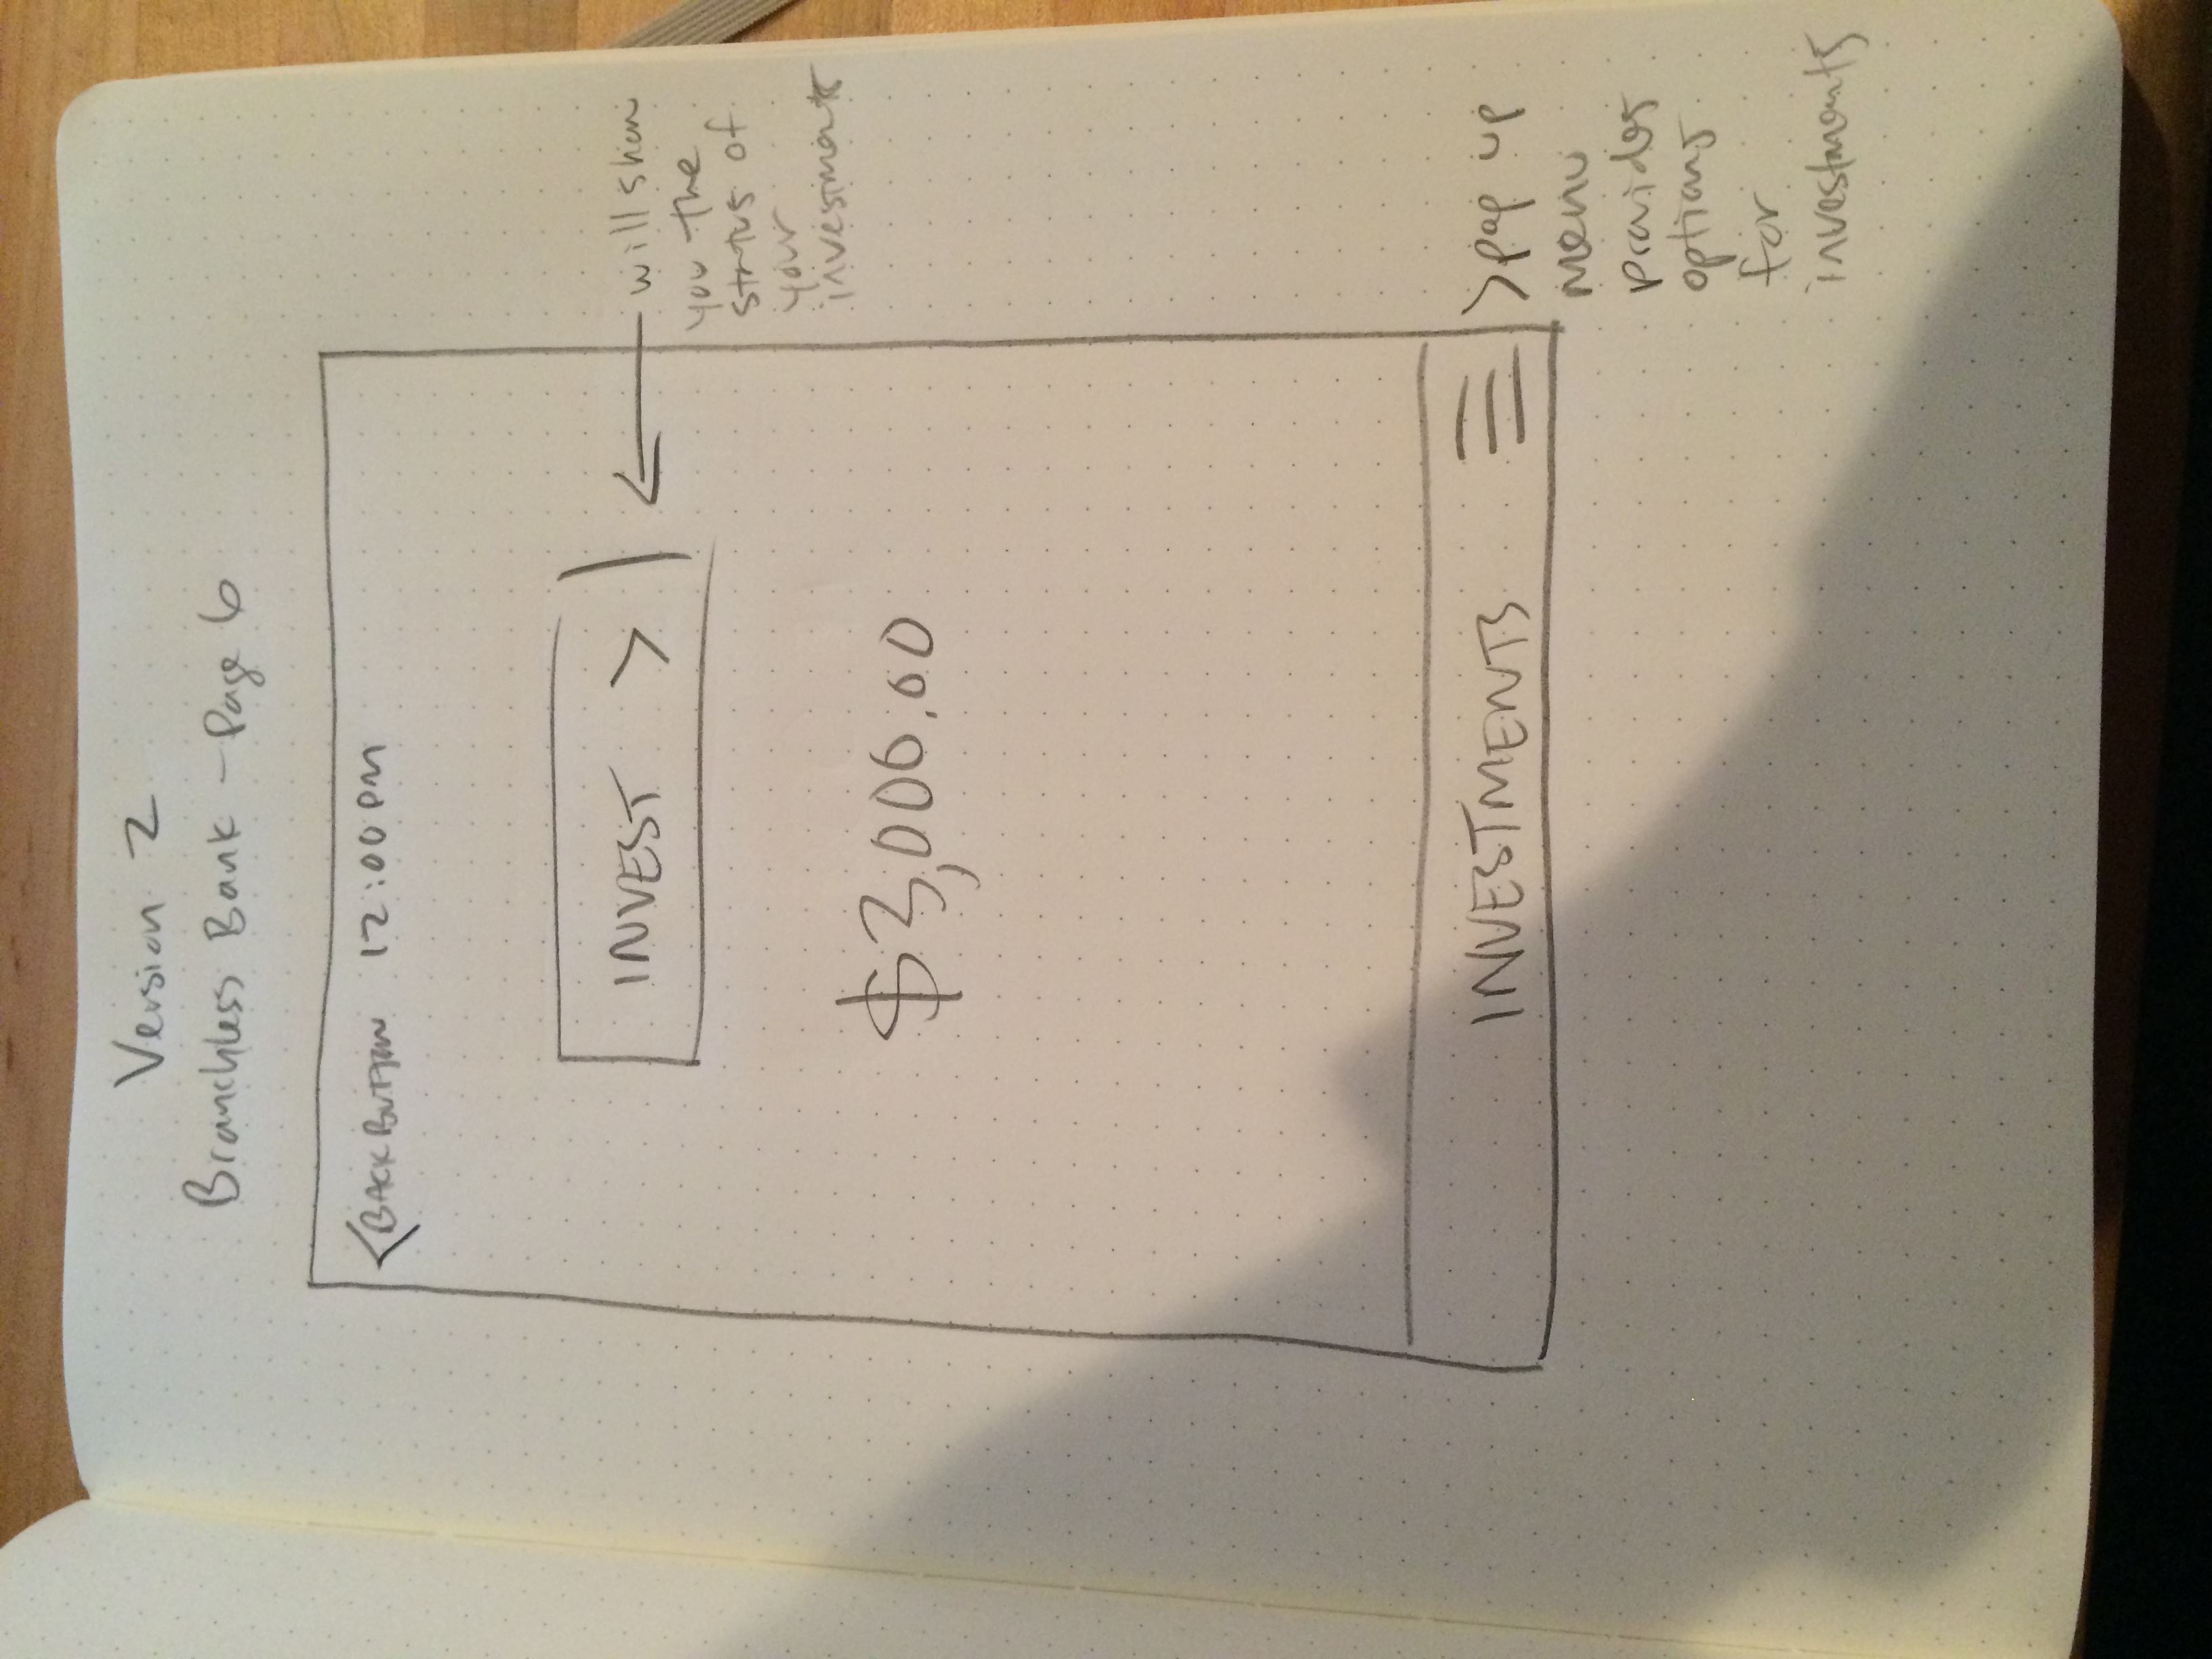 Version 2
Branchless Bank - Page 6
< BACK BUTTON 12:00 PM
INVEST >
will show
you the
status of
your
investments
$3,000.00
INVESTMENTS
> pop up
menu
provides
options
for
investments